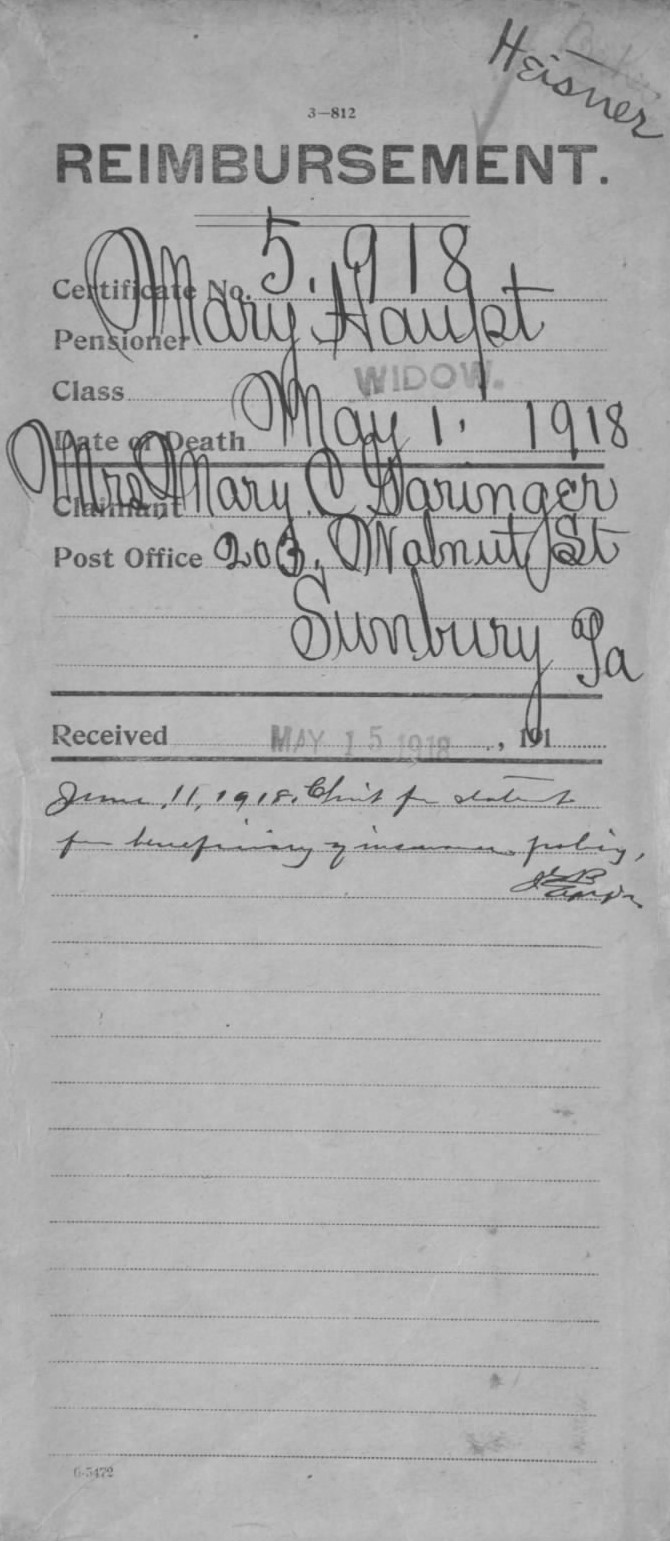 Heisner
3—812
REIMBURSEMENT.
Certificate No. 5.918
Pensioner Mary Haupt
Class WIDOW.
Date of Death May 1. 1918
Claimant Mrs Mary C Garinger
Post Office 203, Walnut St
Sunbury Pa
Received MAY 15 1918, 191
June 11, 1918. Clmt for statmt
for beneficiary of insurance policy,
6-5472